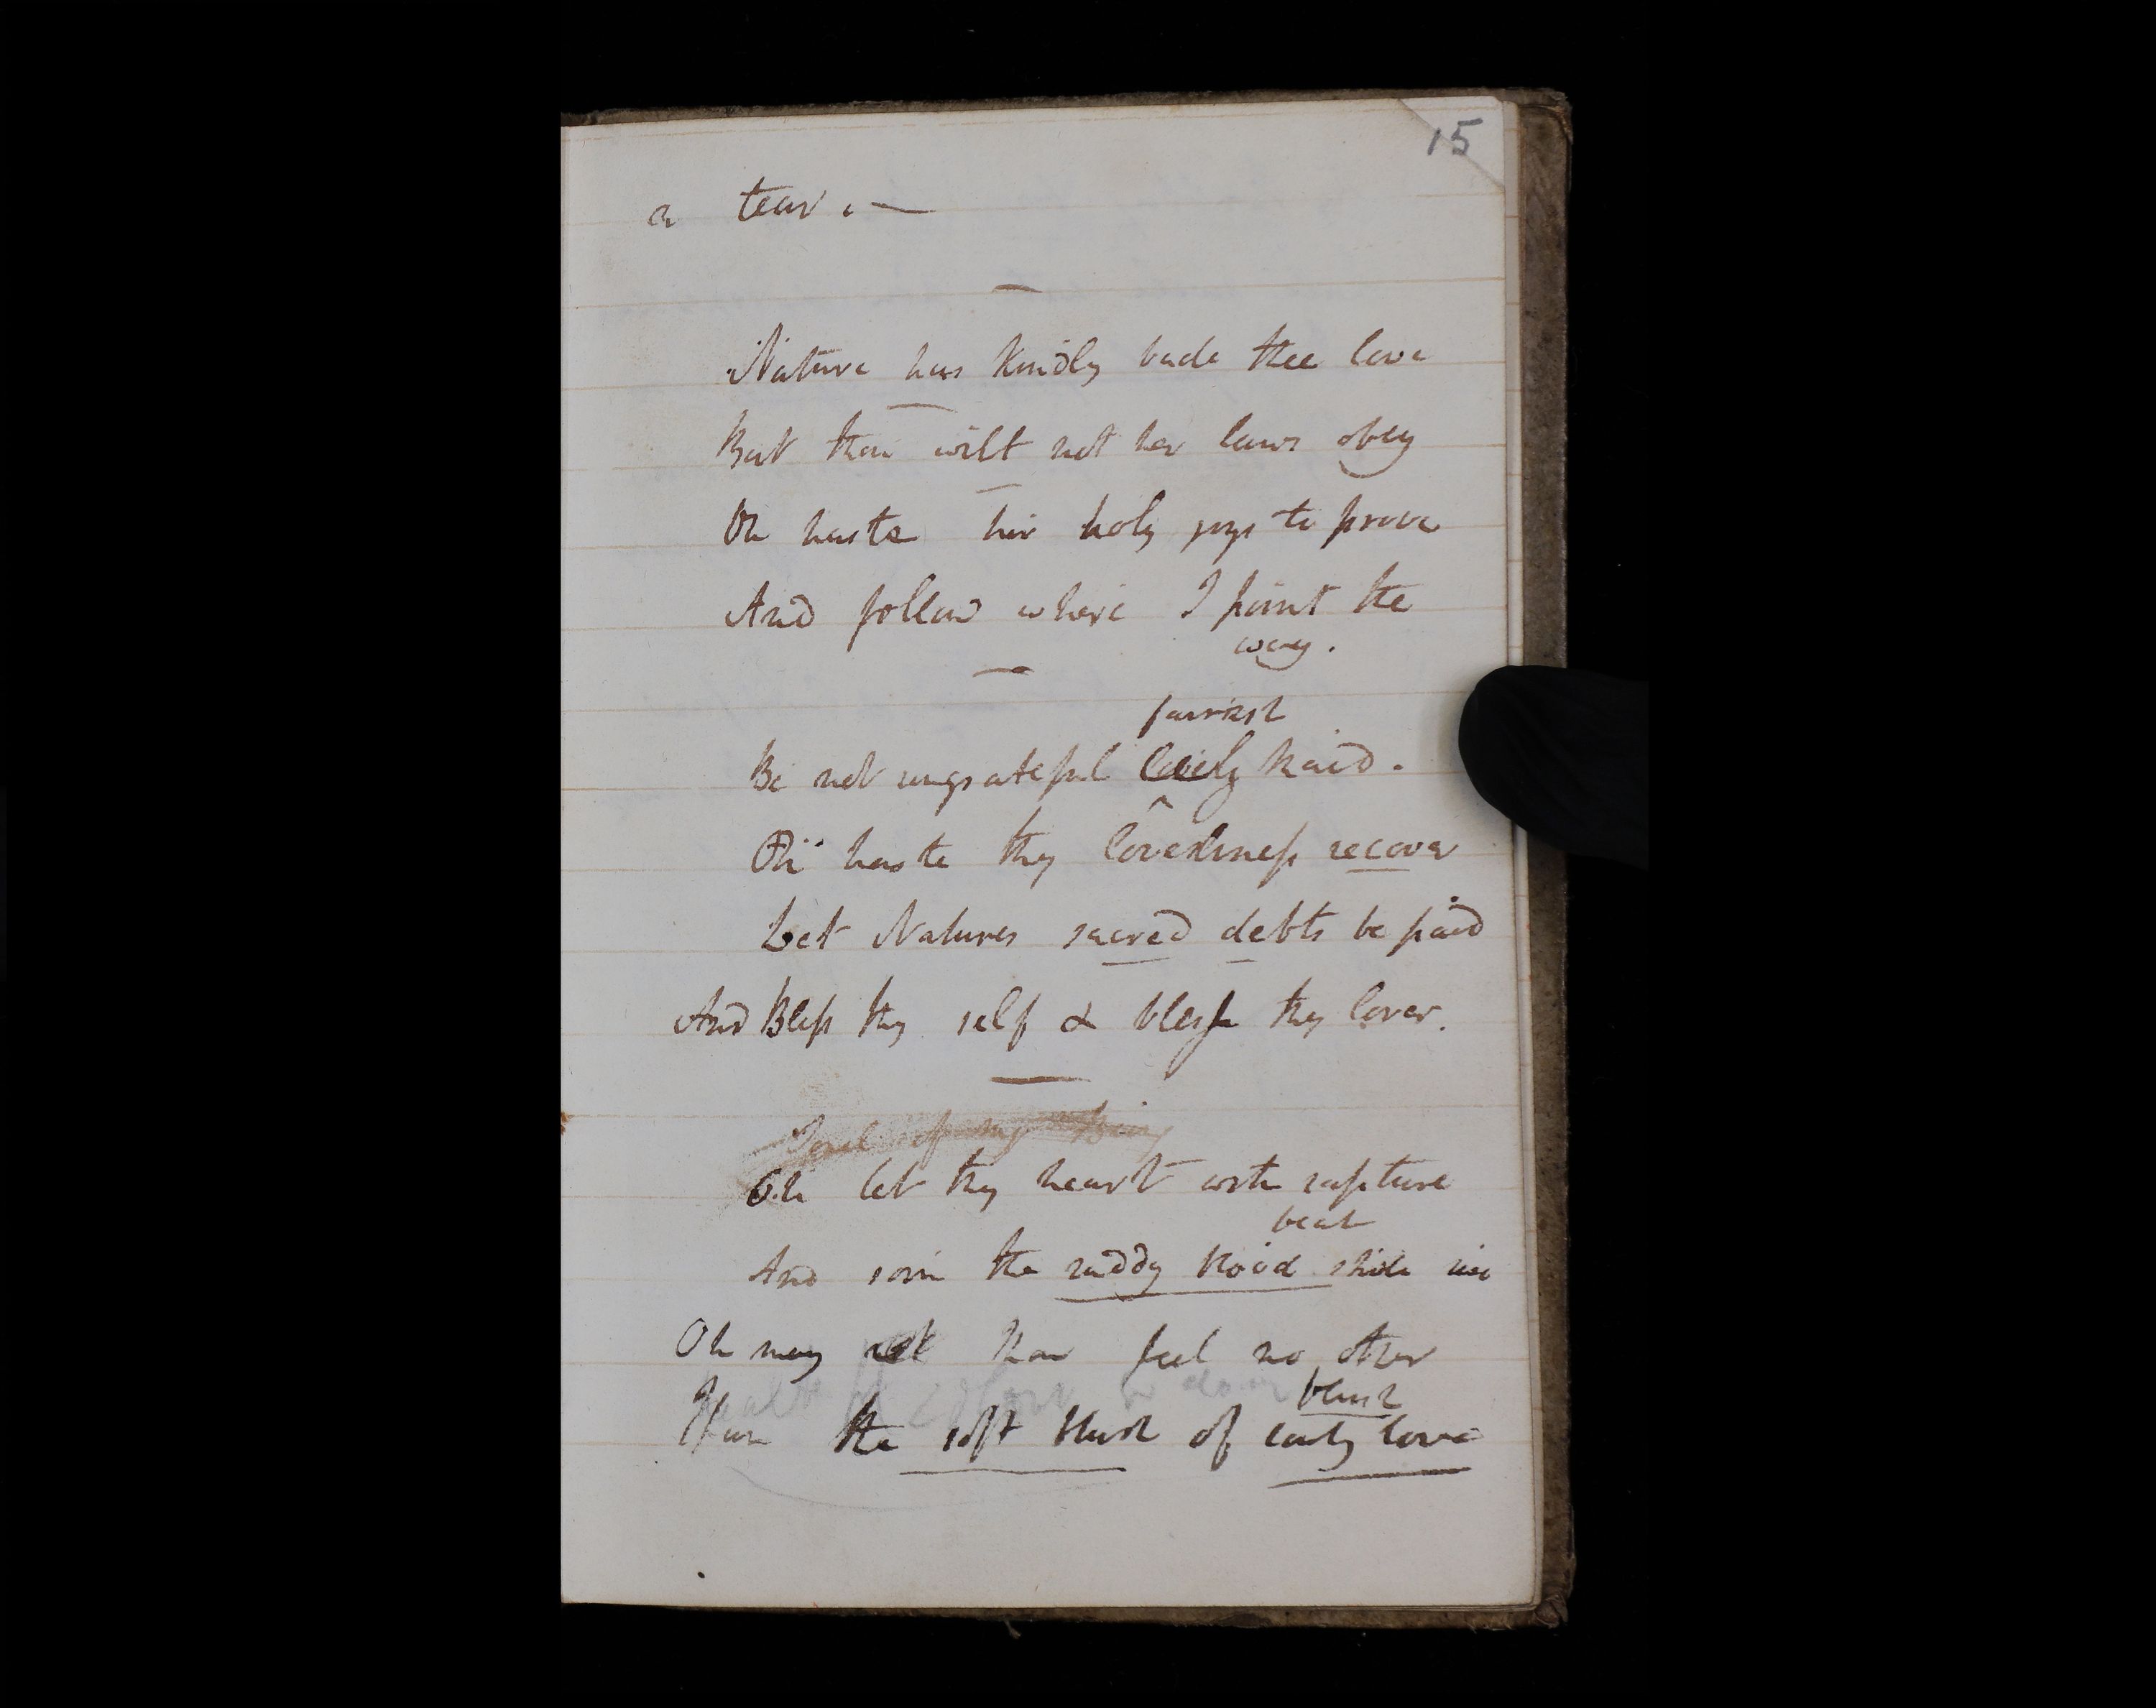 15
a tear. —
Nature has kindly bade thee love
But thou wilt not her laws obey
Oh haste her holy joys to prove
And follow where I point the
way.
fairest
Be not ungrateful lovely Maid.
Oh haste thy loveliness recover
Let Natures sacred debts be paid
And Bless thy self & bless thy lover.
of my Being
Oh let thy heart with rapture
beat
And soon the ruddy blood shide
Oh may thou feel no other
blush
Than the soft blush of early love